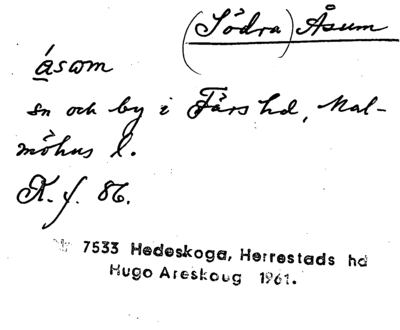 (Södra) Åsum
åsom
sn och by i Färs hd, Mal-
möhus l.
K. f. 86.
7533 Hedeskoga, Herrestads hd
Hugo Areskoug 1961.